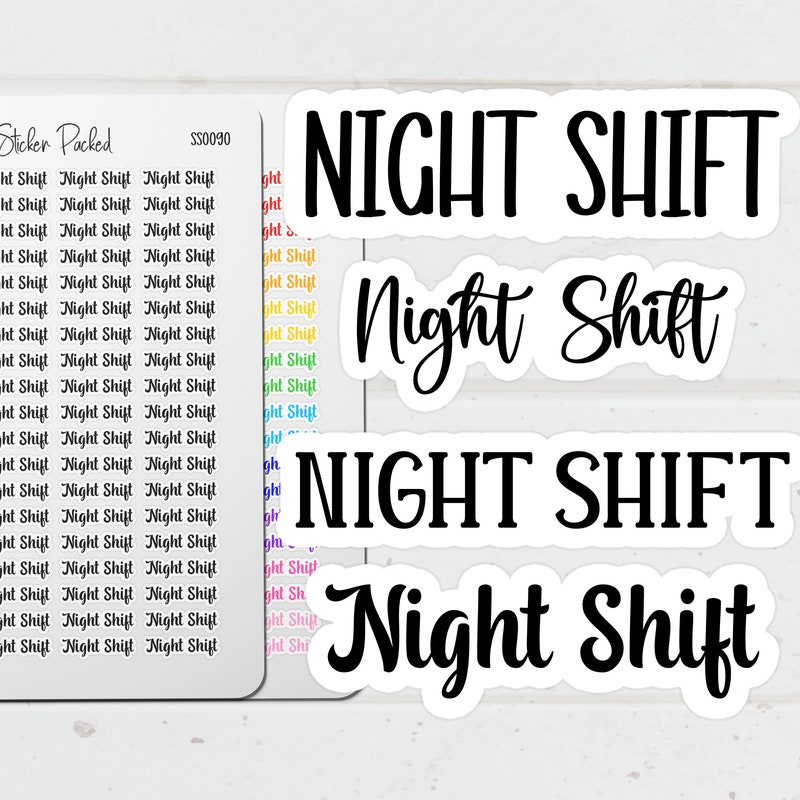 Sticker Packed SS0090
ht Shift Night Shift Night Shift
ht Shift Night Shift Night Shift
ht Shift Night Shift Night Shift
ht Shift Night Shift Night Shift
ht Shift Night Shift Night Shift
ht Shift Night Shift Night Shift
ht Shift Night Shift Night Shift
ht Shift Night Shift Night Shift
ht Shift Night Shift Night Shift
ht Shift Night Shift Night Shift
ht Shift Night Shift Night Shift
ht Shift Night Shift Night Shift
ht Shift Night Shift Night Shift
ht Shift Night Shift Night Shift
ht Shift Night Shift Night Shift
ht Shift Night Shift Night Shift
ht Shift Night Shift Night Shift
ht Shift Night Shift Night Shift
ht Shift Night Shift Night Shift
ght Shift
ght Shift
ght Shift
ght Shift
ght Shift
ght Shift
ght Shift
ght Shift
NIGHT SHIFT
Night Shift
NIGHT SHIFT
Night Shift